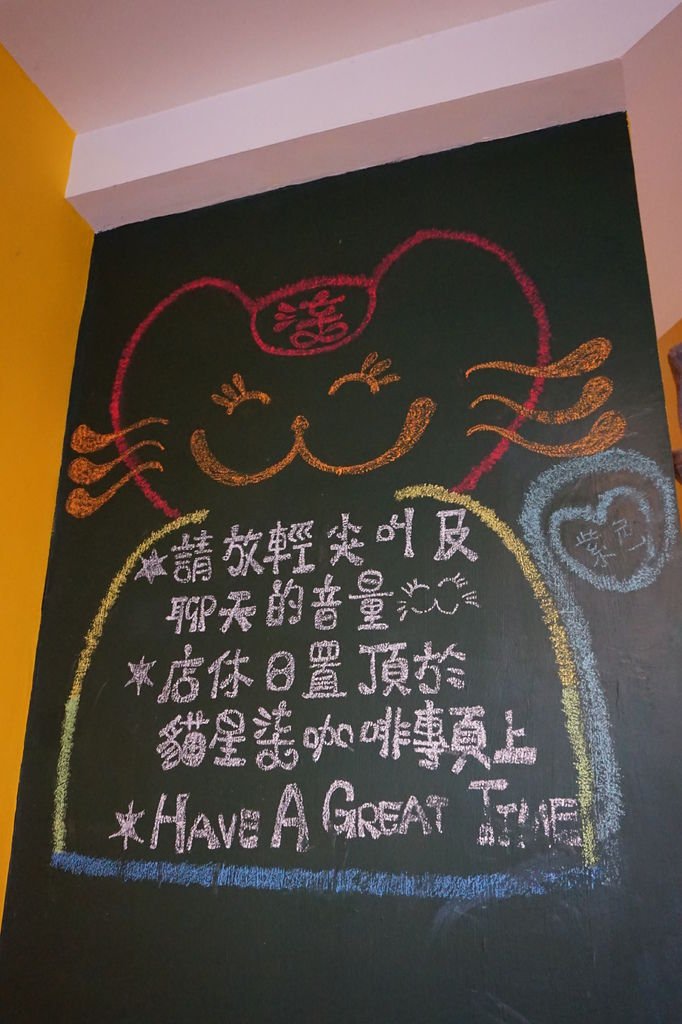 漾
★請放輕尖叫及
聊天的音量
★店休日置頂於
貓星漾咖啡專頁上
★HAVE A GREAT TIME